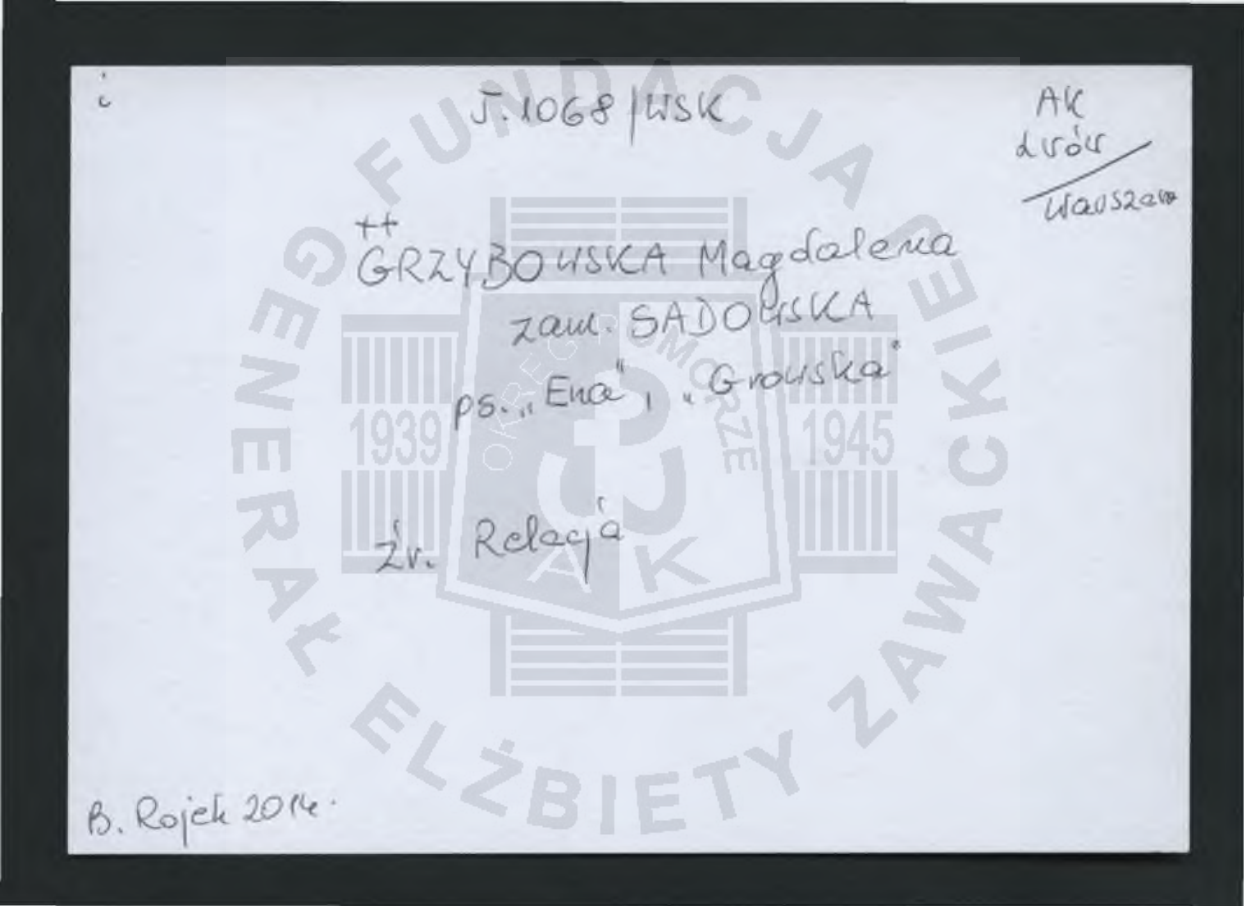 i
T. 1068/WSK
AK
Lwów
Warszawa
++
GRZYBOWSKA Magdalena
zam. SADOWSKA
ps. „Ena", „Growska"
źr. Relacja
B. Rojek 2014.
FUNDACJA GENERAŁ ELŻBIETY ZAWACKIEJ
OKRĘG POMORZE
1939
1945
AK